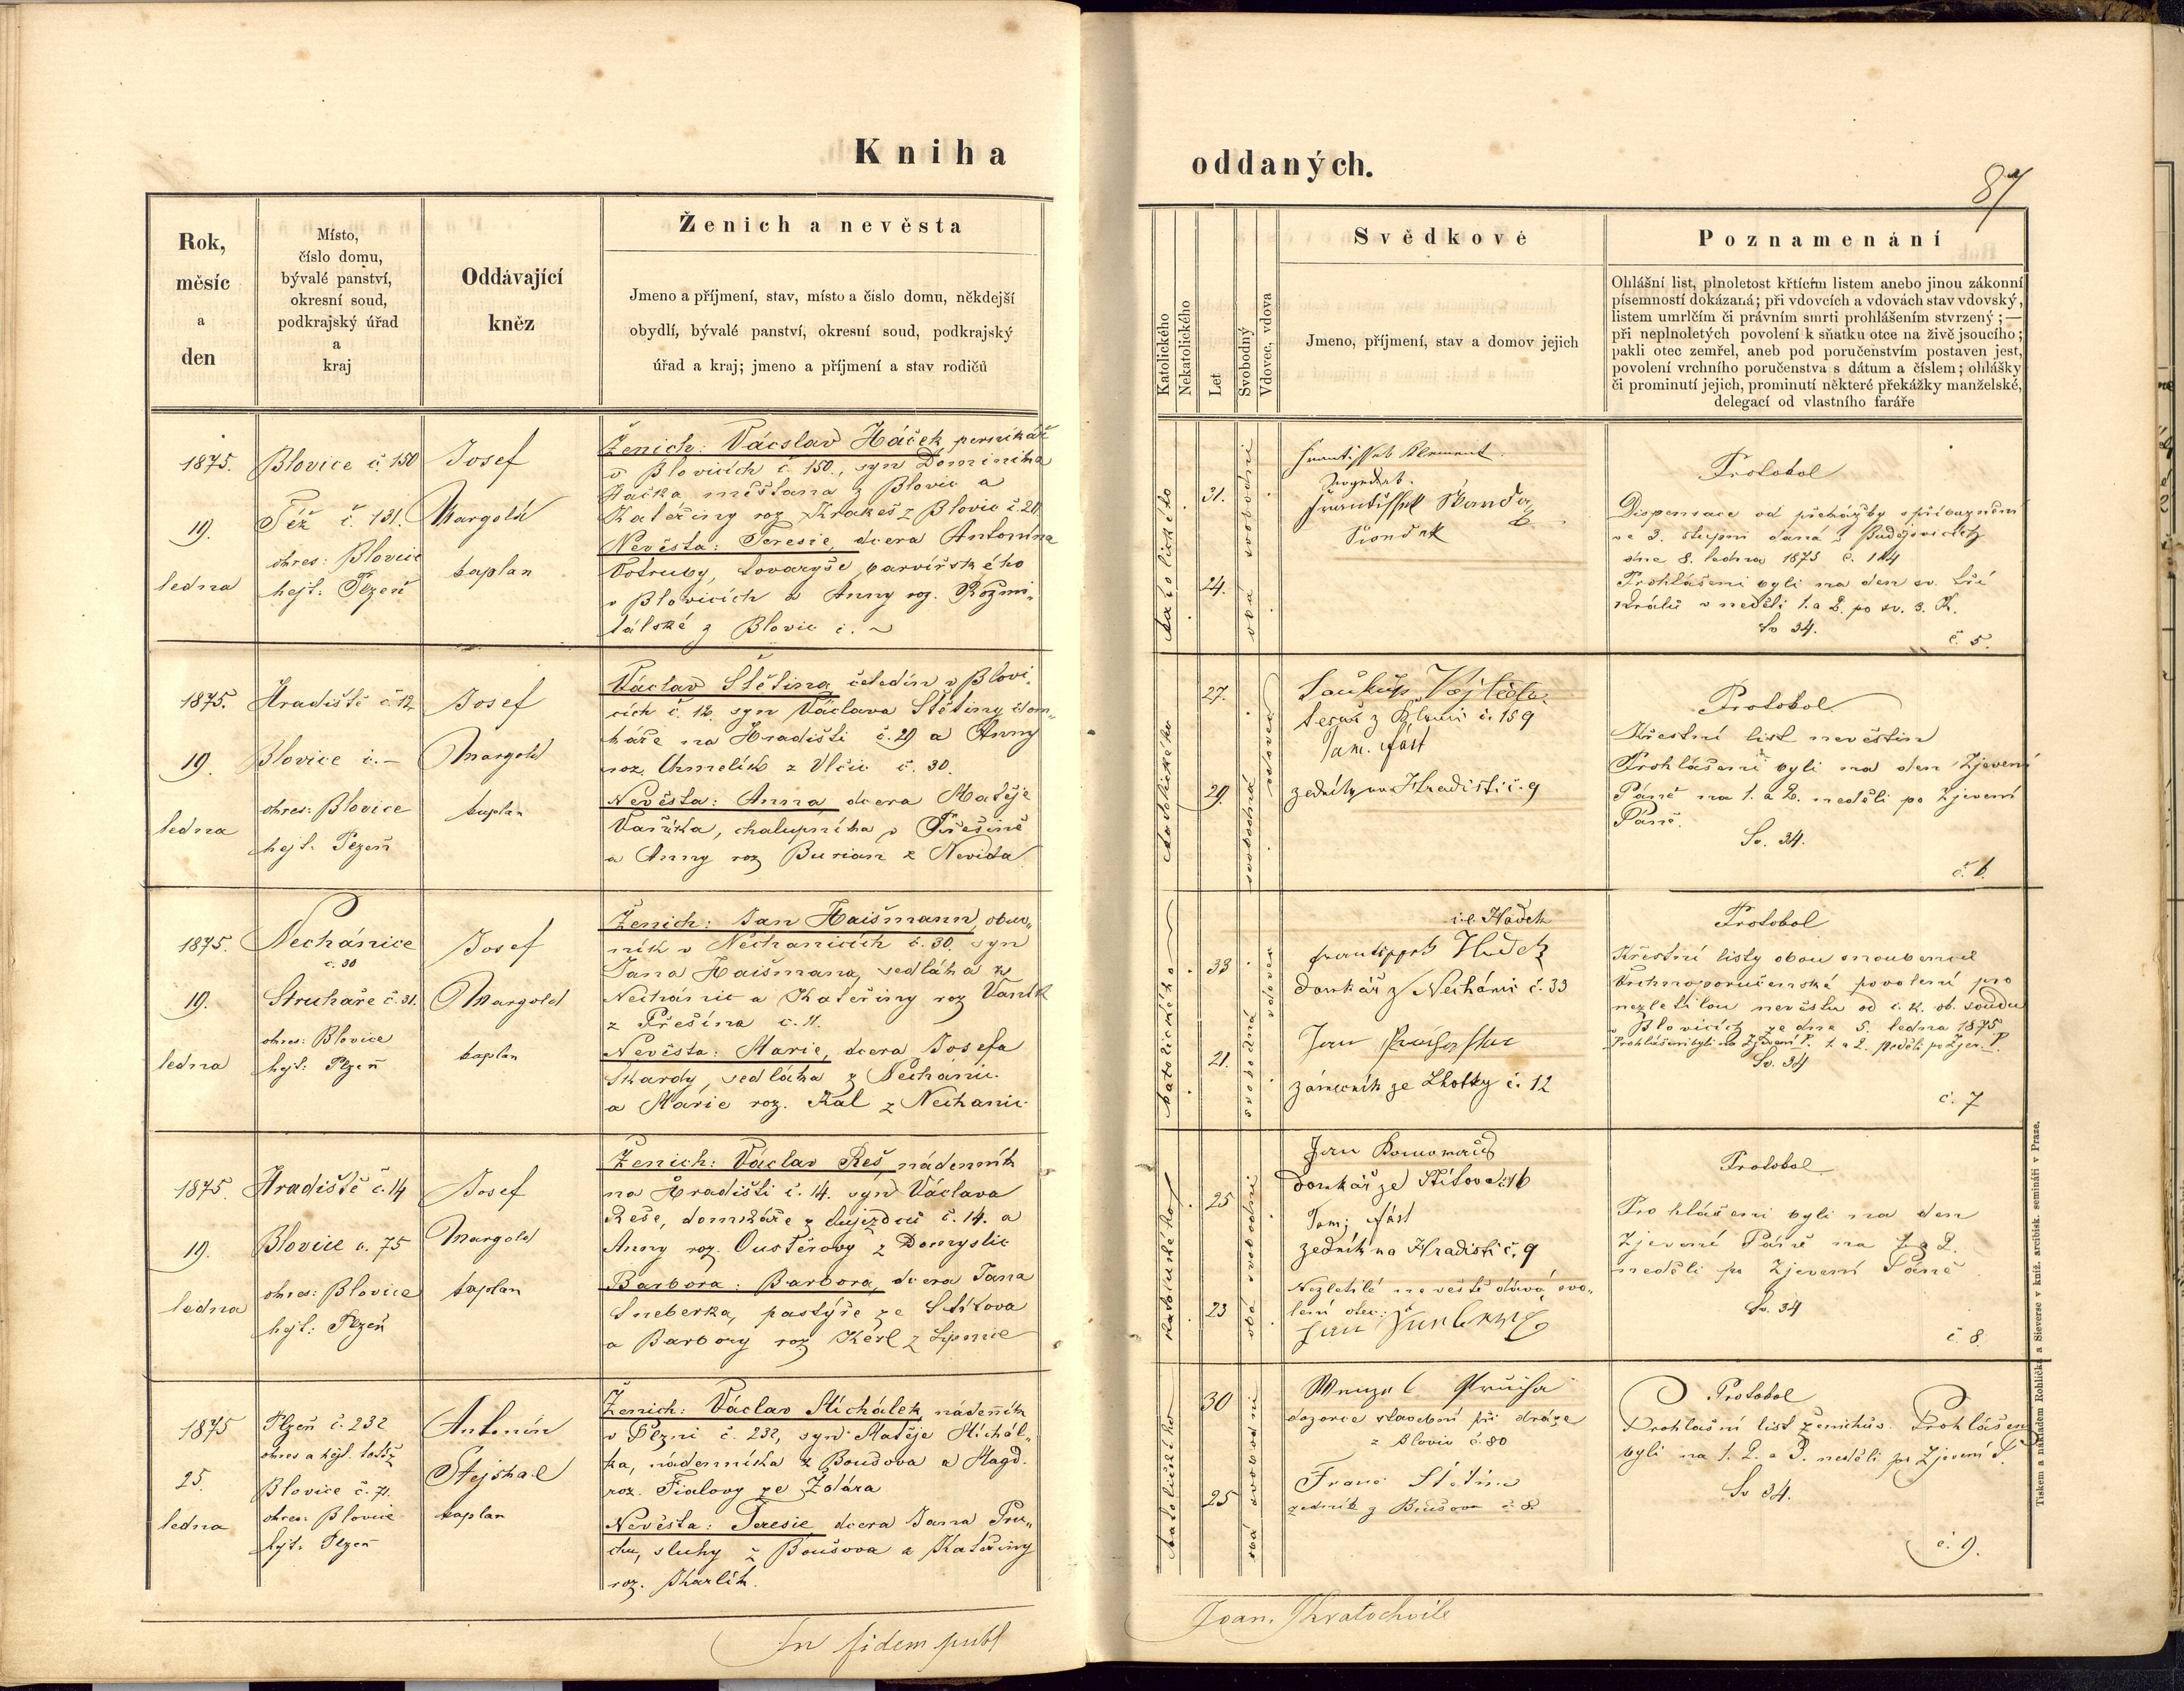 Kniha
oddaných.
87
Rok,
měsíc
a
den
Místo,
číslo domu,
bývalé panství,
okresní soud,
podkrajský úřad
a
kraj
Oddávající
kněz
Ženich a nevěsta
Jmeno a příjmení, stav, místo a číslo domu, někdejší
obydlí, bývalé panství, okresní soud, podkrajský
úřad a kraj; jmeno a příjmení a stav rodičů
Katolického
Nekatolického
Let
Svobodný
Vdovec, vdova
Svědkové
Jmeno, příjmení, stav a domov jejich
Poznamenání
Ohlášní list, plnoletost křticím listem anebo jinou zákonní
písemností dokázaná; při vdovcích a vdovách stav vdovský,
listem umrlčím či právním smrti prohlášením stvrzený; —
při neplnoletých povolení k sňatku otce na živě jsoucího;
pakli otec zemřel, aneb pod poručenstvím postaven jest,
povolení vrchního poručenstva s dátum a číslem; ohlášky
či prominutí jejich, prominutí některé překážky manželské,
delegací od vlastního faráře
1875.
19.
ledna
Blovice č. 150
Též č. 131.
okres: Blovice
hejt: Plzeň
Josef
Margold
kaplan
Ženich: Vácslav Háček, perníkář
v Blovicích č. 150., syn Dominika
Háčka měšťana z Blovic a
Kateřiny roz. Krakeš z Blovic č. 20
Nevěsta: Teresie, dcera Antonína
Votruby, tovaryše barvířského
v Blovicích a Anny roz. Rozmi„
tálské z Blovic č. ~
katolického
31.
24.
oba svobodni
František Klement
František Skanda
Protokol
Dispensace od překážky spříbuznění
ve 3. stupni daná z Budějovic
dne 8. ledna 1875 č. 144
Prohlášeni byli na den sv. tří
králů v neděli 1. a 2. po sv. 3. K.
Sv 34.
č. 5.
1875.
19.
ledna
Hradiště č. 12
Blovice č. –
okres: Blovice
hejt: Plzeň
Josef
Margold
kaplan
Václav Štětina, čeledín v Blovi„
cích č. 12. syn Václava Štětiny dom„
káře na Hradišti č. 29 a Anny
roz. Chmelík z Vlčic č. 30.
Nevěsta: Anna, dcera Matěje
Vaříka, chalupníka v Přešíně
a Anny roz Burian z Nevida
katolického
27.
29.
svobodná
vdovec
Soukup Vojtěch
tesař z Blovic č. 159
Tom. Fást
zedník na Hradišti č. 9
Protokol
Křestní list nevěstin
Prohlášeni byli na den Zjevení
Páně na 1. a 2. neděli po Zjevení
Páně.
Sv. 34.
č. 6.
1875.
19.
ledna
Nechánice
č. 30
Struhaře č. 31.
okres: Blovice
hejt: Plzeň
Josef
Margold
kaplan
Ženich: Jan Haišmann, obuv„
ník v Nechanicích č. 30. syn
Jana Haišmana, sedláka z
Nechánic a Kateřiny roz Vaník
z Přešína č. 11.
Nevěsta: Marie, dcera Josefa
Skardy, sedláka z Nechanic
a Marie roz. Kal z Nechanic
katolického
33
21.
svobodná
vdovec
i.e. Hádek
domkář z Nechánic č. 33
Jan
zámečník ze Lhotky č. 12
Protokol
Křestní listy obou snoubenců
Vrchnoporučenské povolení pro
nezletilou nevěstu od c. k. ok. soudu
v Blovicích ze dne 5. ledna 1875
Prohlášeni byli na Zjevení P. 1. a 2. neděli po Zjev. P.
Sv. 34
č. 7
1875.
19.
ledna
Hradiště č. 14
Blovice č. 75
okres: Blovice
hejt: Plzeň
Josef
Margold
kaplan
Ženich: Václav Reš, nádenník
na Hradišti č. 14. syn Václava
Reše, domkáře z Aujezdů č. 14. a
Anny roz. Oustěrovy z Domyslic
Barbora: Barbora, dcera Jana
Šneberka, pastýře ze Štítova
a Barbory roz Kérl z Lipnic
katolického
25
23
oba svobodni
Jan
domkář ze Štítova č. 16
Tom: Fást
zedník na Hradišti č. 9
Nezletilé nevěstě dává svo„
lení otec:
Jan
Protokol
Prohlášeni byli na den
Zjevení Páně na 1. a 2.
neděli po Zjevení Páně
Sv. 34
č. 8.
1875
25.
ledna
Plzeň č. 232
okres a hejt. totéž
Blovice č. 71.
okres: Blovice
hejt: Plzeň
Antonín
Stejskal
kaplan
Ženich: Václav Michálek, nádenník
v Plzni č. 232, syn Matěje Michál„
ka, nádenníka z Boudova a Magd.
roz. Fialovy ze Žďára
Nevěsta: Teresie, dcera Jana Prů„
chy, sluhy z Boušova a Kateřiny
roz. Karlík.
katolického
30
25
oba svobodni
Wenzel Průcha
dozorce stavební při dráze
z Blovic č. 80
Franc Štětina
zedník z Boušova č. 8.
Protokol
Prohlašní list ženichův. Prohlášeni
byli na 1. 2. a 3. neděli po Zjevení P.
Sv 34.
č. 9.
In fidem publ
Joan. Kratochvile
Tiskem a nákladem Rohlíčka a Sieverse v kníž. arcibisk. semináři v Praze.